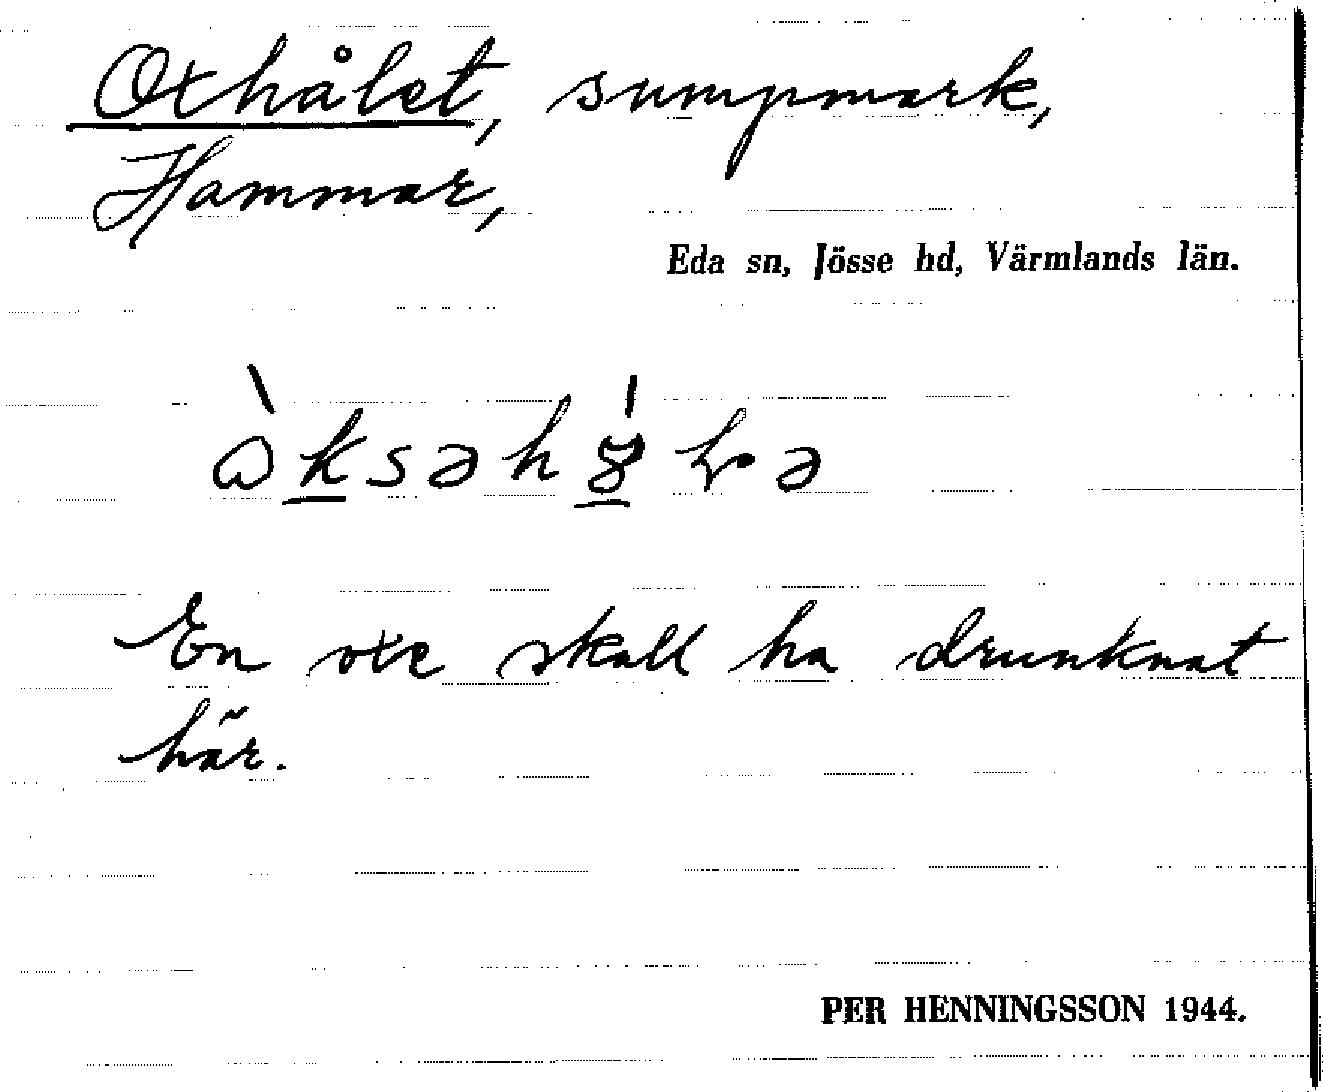 Oxhålet, sumpmark,
Hammar,
Eda sn, Jösse hd, Värmlands län.
En oxe skall ha drunknat
här.
PER HENNINGSSON 1944.